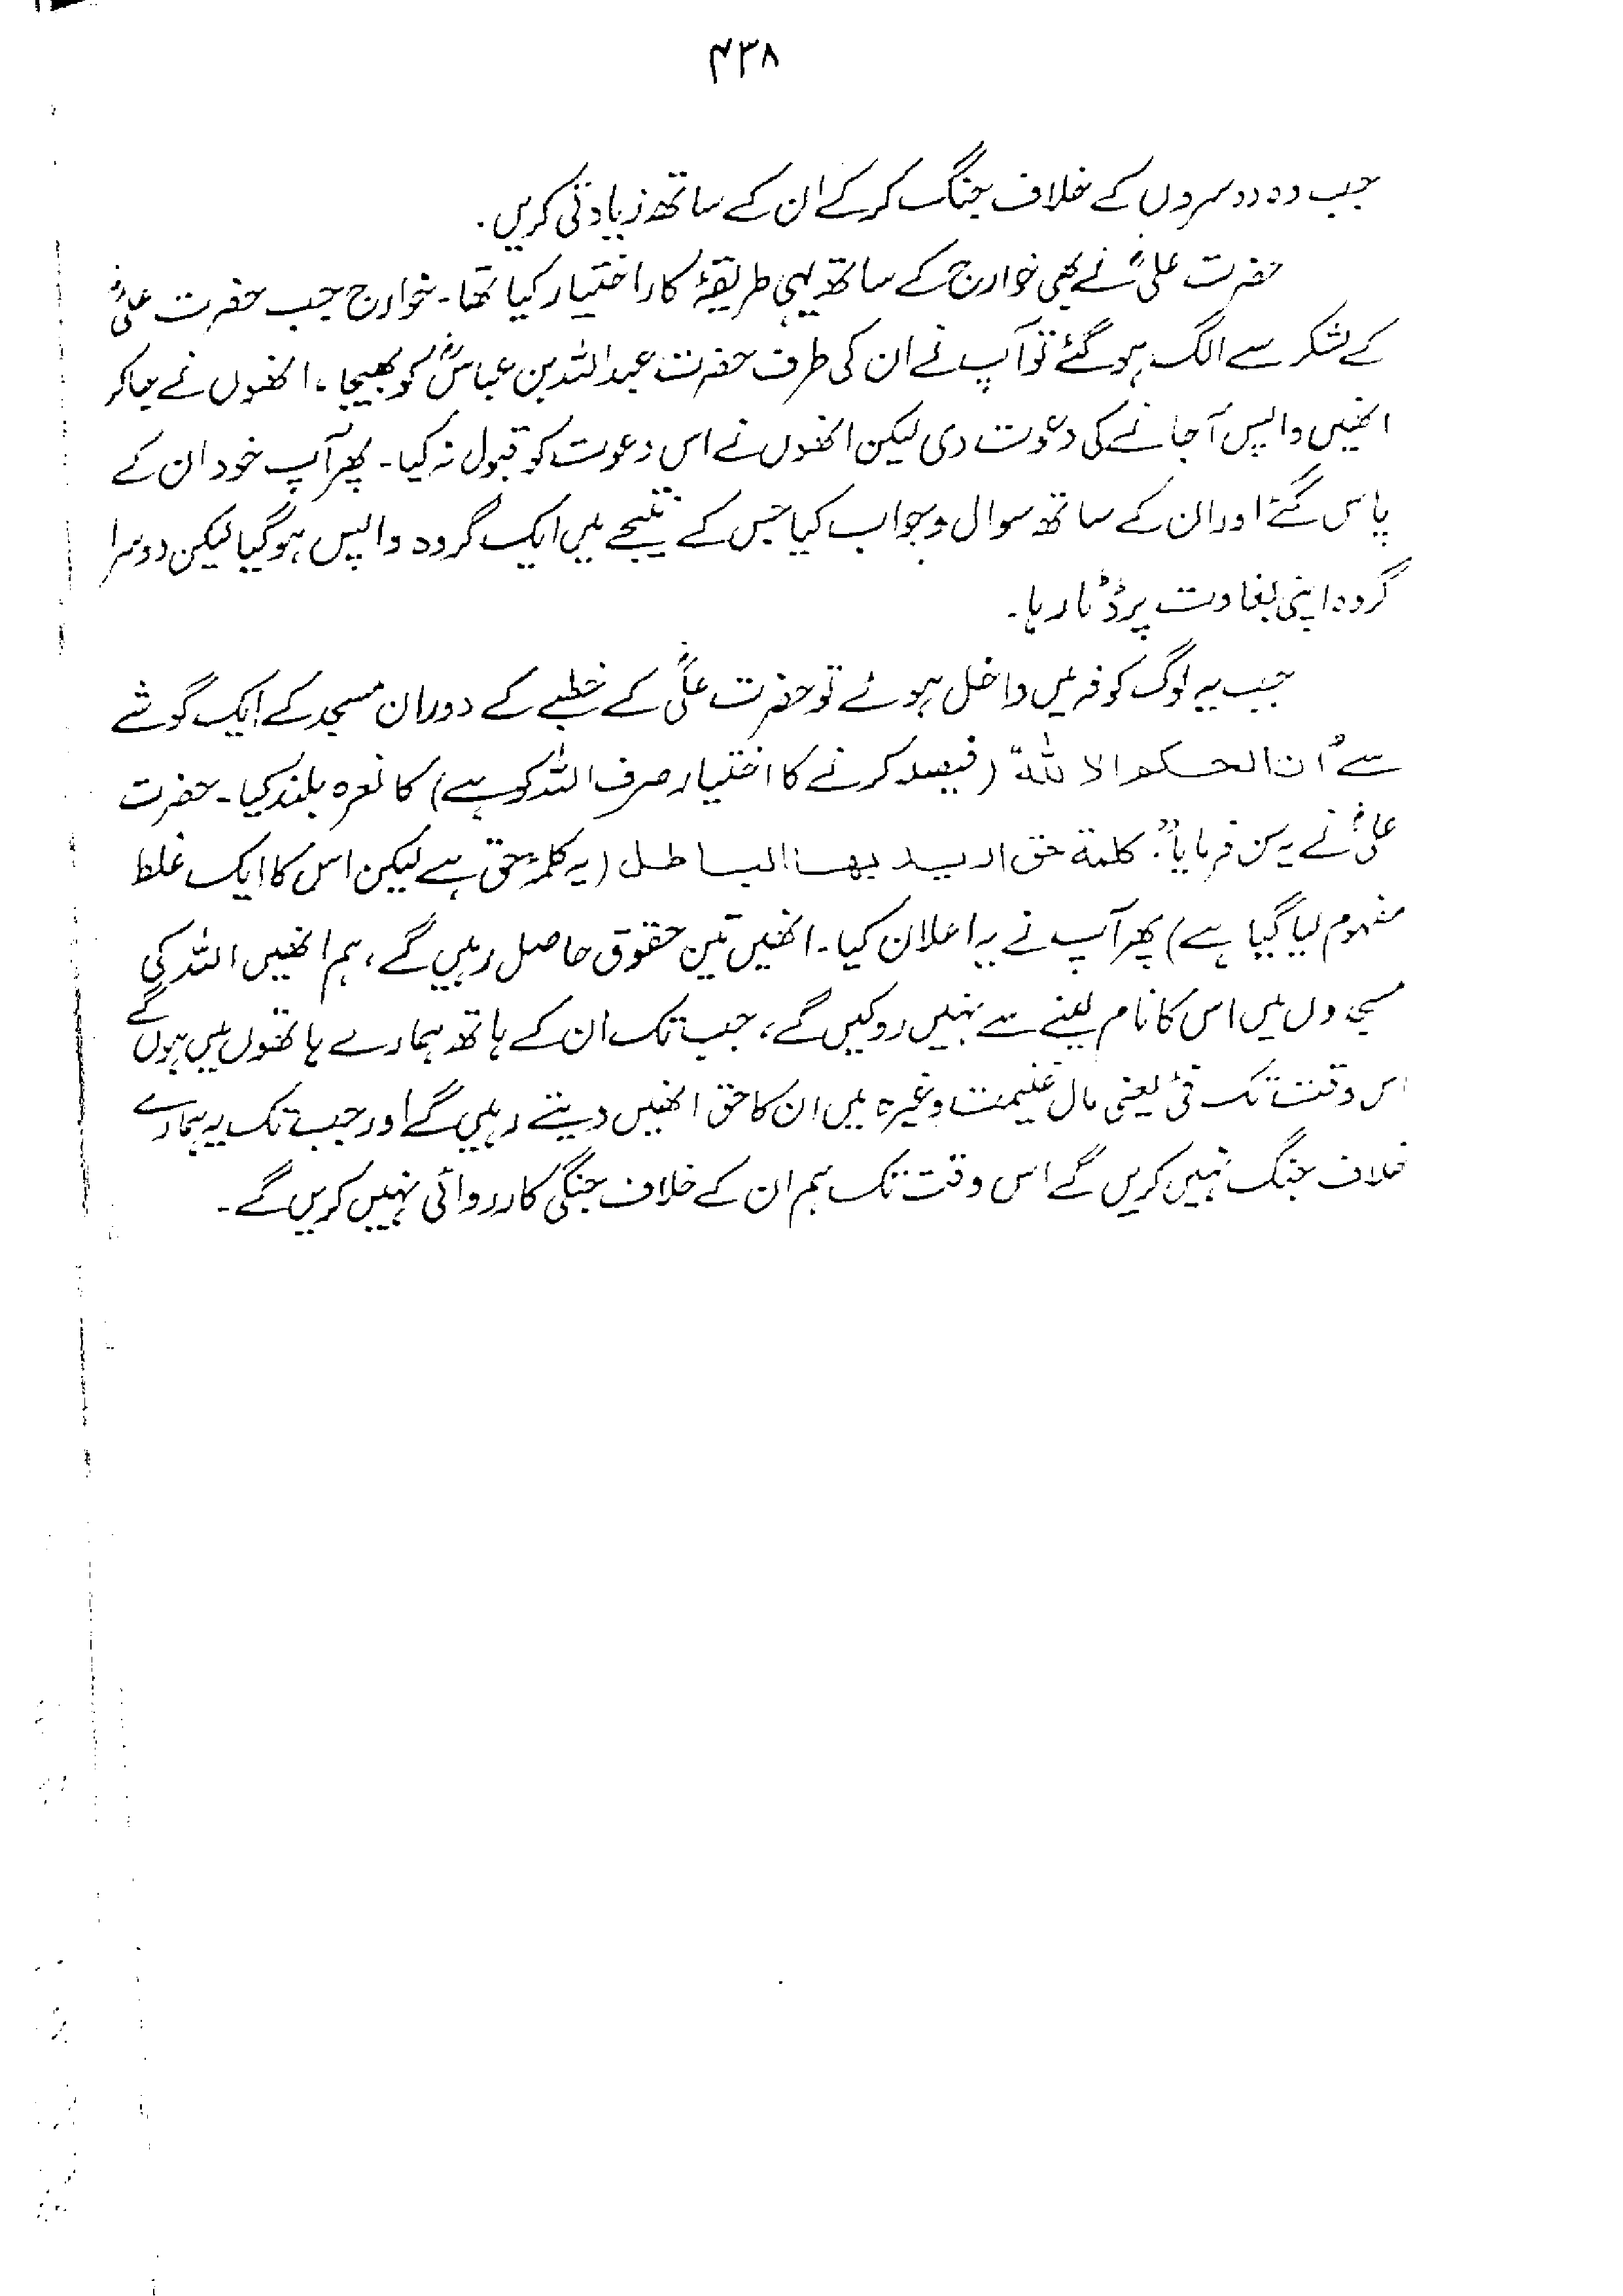 ۴۳۸
جب وہ دوسروں کے خلاف جنگ کرکے ان کے ساتھ زیادتی کریں۔
حضرت علیؓ نے بھی خوارج کے ساتھ یہی طریقۂ کار اختیار کیا تھا۔ خوارج جب حضرت علیؓ
کے لشکر سے الگ ہوگئے تو آپ نے ان کی طرف حضرت عبداللہ بن عباسؓ کو بھیجا، انھوں نے جاکر
انھیں واپس آجانے کی دعوت دی لیکن انھوں نے اس دعوت کو قبول نہ کیا۔ پھر آپ خود ان کے
پاس گئے اور ان کے ساتھ سوال وجواب کیا جس کے نتیجے میں ایک گروہ واپس ہوگیا لیکن دوسرا
گروہ اپنی بغاوت پر ڈٹا رہا۔
جب یہ لوگ کوفہ میں داخل ہوئے تو حضرت علیؓ کے خطبے کے دوران مسجد کے ایک گوشے
سے "ان الحکم الا للہ" (فیصلہ کرنے کا اختیار صرف اللہ کو ہے) کا نعرہ بلند کیا۔ حضرت
علیؓ نے یہ سن فرمایا: "کلمة حق ارید بھا الباطل (یہ کلمۂ حق ہے لیکن اس کا ایک غلط
مفہوم لیا گیا ہے) پھر آپ نے یہ اعلان کیا۔ انھیں تین حقوق حاصل رہیں گے، ہم انھیں اللہ کی
مسجدوں میں اس کا نام لینے سے نہیں روکیں گے، جب تک ان کے ہاتھ ہمارے ہاتھوں میں ہوں گے
اس وقت تک فئ یعنی مال غنیمت وغیرہ میں ان کا حق انھیں دیتے رہیں گے اور جب تک یہ ہمارے
خلاف جنگ نہیں کریں گے اس وقت تک ہم ان کے خلاف جنگی کارروائی نہیں کریں گے۔